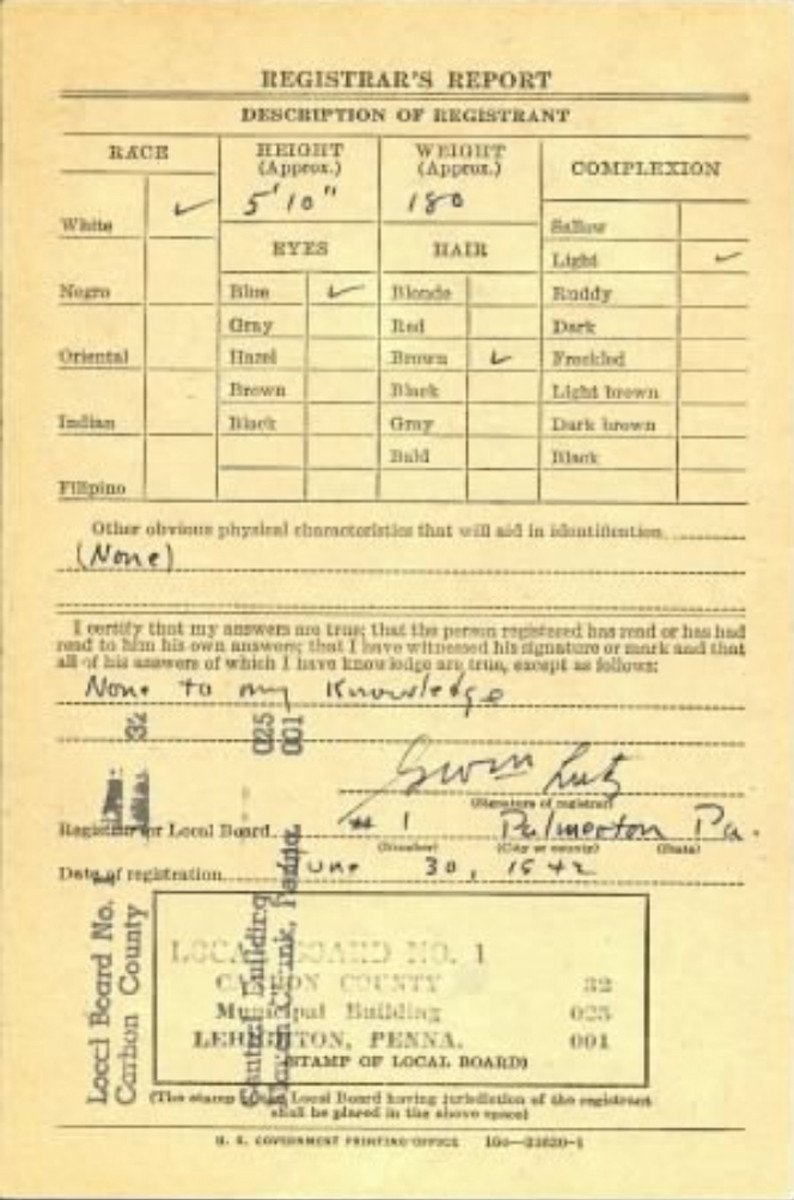 REGISTRAR'S REPORT
DESCRIPTION OF REGISTRANT
RACE
White ✓
Negro
Oriental
Indian
Filipino
HEIGHT
(Approx.)
5' 10"
WEIGHT
(Approx.)
180
EYES
Blue ✓
Gray
Hazel
Brown
Black
HAIR
Blonde
Red
Brown ✓
Black
Gray
Bald
COMPLEXION
Sallow
Light ✓
Ruddy
Dark
Freckled
Light brown
Dark brown
Black
Other obvious physical characteristics that will aid in identification
(None)
I certify that my answers are true; that the person registered has read or has had
read to him his own answers; that I have witnessed his signature or mark and that
all of his answers of which I have knowledge are true, except as follows:
None to my Knowledge
Lutz
(Signature of registrar)
Registrar for Local Board # 1 Palmerton Pa.
(Number) (City or county) (State)
Date of registration June 30, 1942
LOCAL BOARD NO. 1
CARBON COUNTY 32
Municipal Building 025
LEHIGHTON, PENNA. 001
(STAMP OF LOCAL BOARD)
(The stamp of the Local Board having jurisdiction of the registrant
shall be placed in the above space)
U. S. GOVERNMENT PRINTING OFFICE 16c—21630-1
Local Board No. 1
Carbon County 32
025
Central Building 001
Mauch Chunk, Penna.